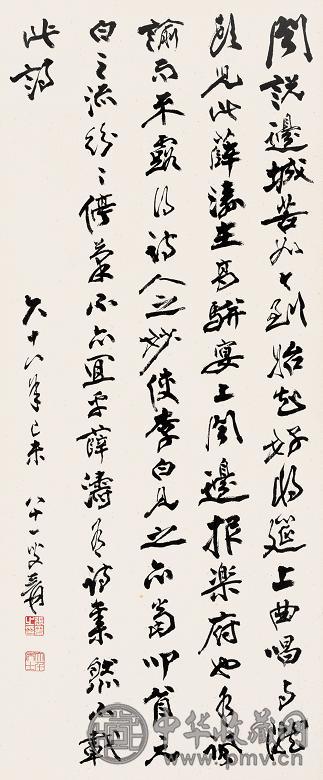 聞說邊城苦如今到始知好將筵上曲唱與隴
頭兒此薛濤在高駢宴上聞邊報樂府也有諷
諭而不露得詩人之妙使李白見之亦當叩首元
白之流紛〻停筆不亦宜乎薛濤有詩集然不載
此詩
六十八年己未 八十一叟爰
中华收藏网
www.pmv.cn